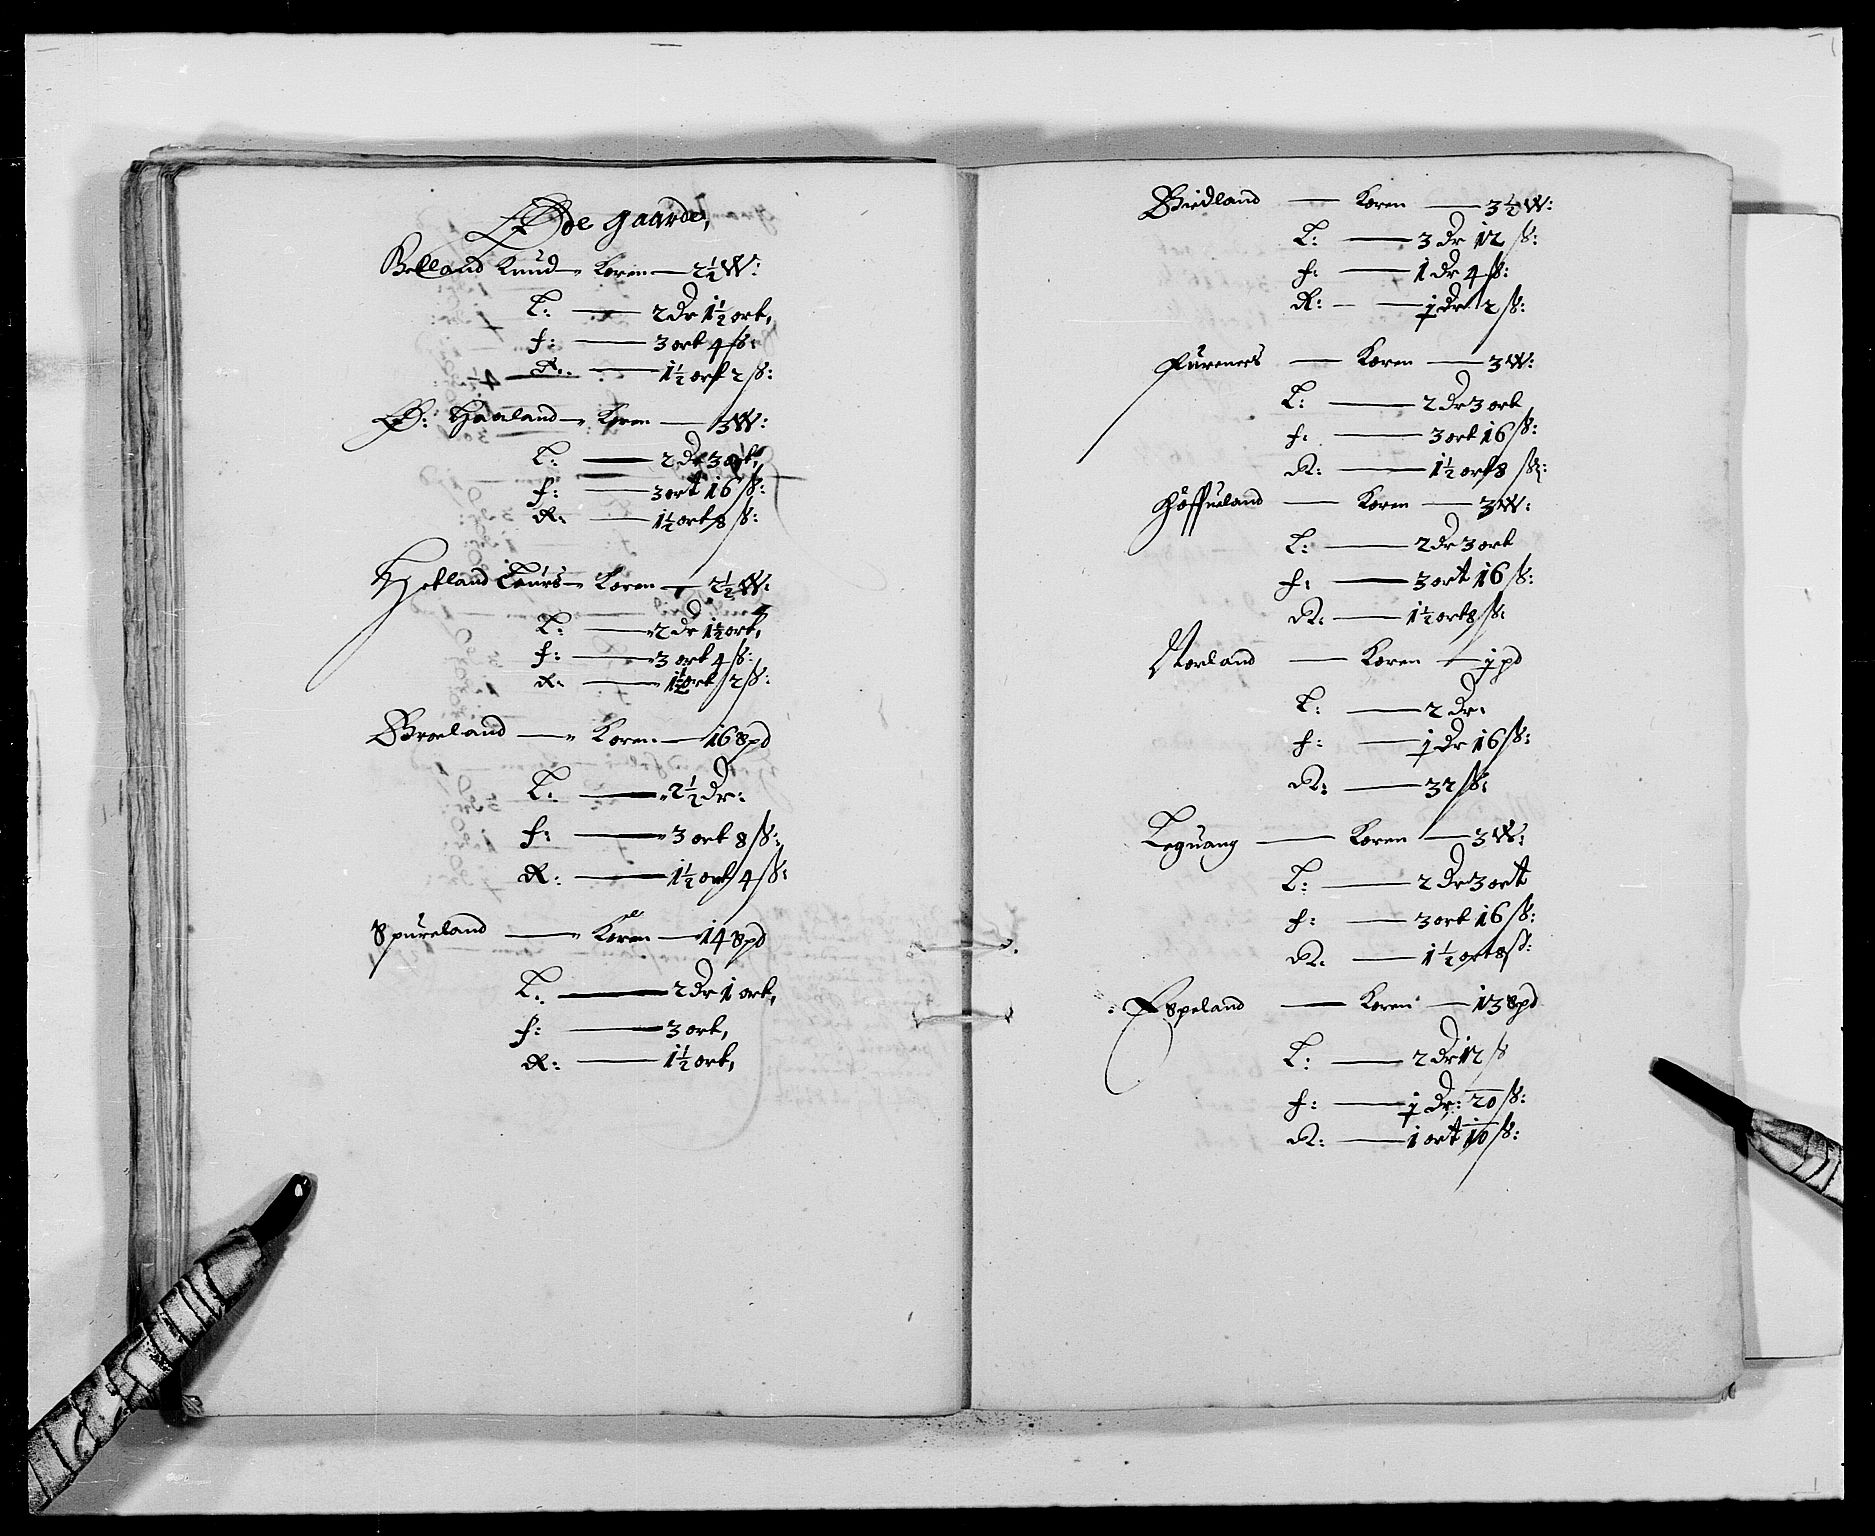 Øde gaarde,
Birkland Knud – Koren — 2½ W:
L: — 2 dr 1½ ort,
f: — 3 ort 4 ß:
R: — 1½ ort 2 ß:
Ø: Haaland – Koren — 3 W:
L: — 2 dr 3 ort,
f: — 3 ort 16 ß:
R: — 1½ ort 8 ß:
Hetland Laurs – Koren — 2½ W:
L: — 2 dr 1½ ort,
f: — 3 ort 4 ß:
R: — 1½ ort 2 ß:
Broeland — Koren — 16 spd
L: — 2½ dr:
f: — 3 ort 8 ß:
R: — 1½ ort 4 ß:
Spureland — Koren — 14 spd
L: — 2 dr 1 ort,
f: — 3 ort,
R: — 1½ ort,
Birdland — Koren — 3½ W:
L: — 3 dr 12 ß:
f: — 1 dr 4 ß:
R: — j dr 2 ß:
Fureness — Koren — 3 W:
L: — 2 dr 3 ort
f: — 3 ort 16 ß:
R: — 1½ ort 8 ß:
Høffueland — Koren — 3 W:
L: — 2 dr 3 ort
f: — 3 ort 16 ß:
R: — 1½ ort 8 ß:
Norland — Koren — j pd
L: — 2 dr:
f: — j dr 16 ß:
R: — 32 ß:
Leguang — Koren — 3 W:
L: — 2 dr 3 ort
f: — 3 ort 16 ß:
R: — 1½ ort 8 ß:
Espeland — Koren — 13 spd
L: — 2 dr 12 ß
f: — j dr: 20 ß:
R: — 1 ort 10 ß: